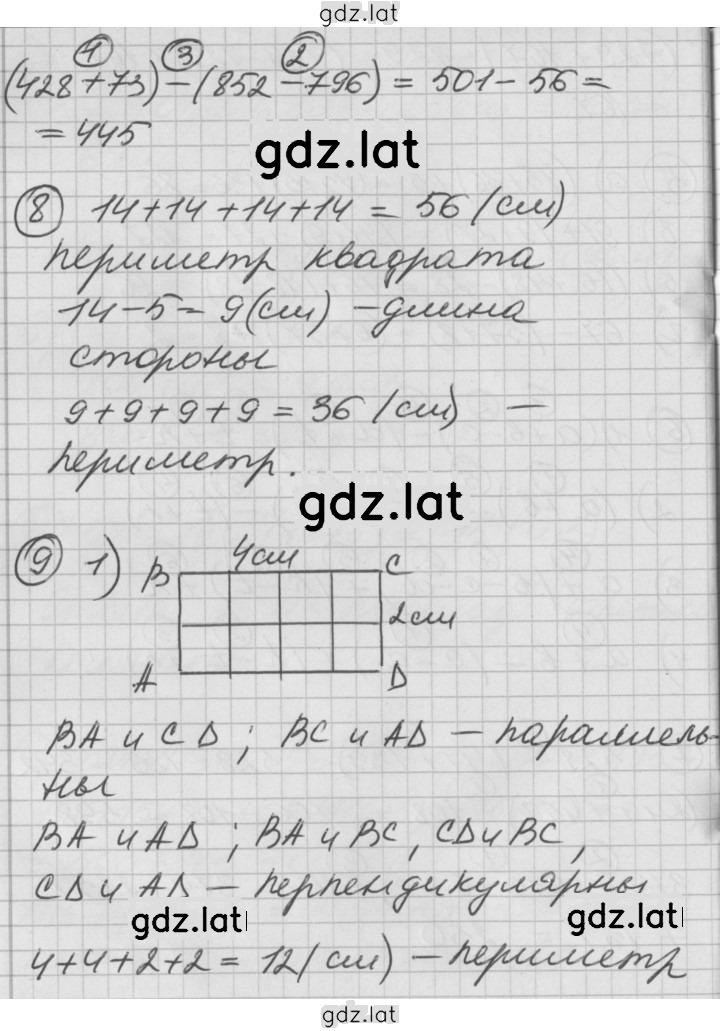 gdz.lat
1 3 2
(428+73)-(852-796)= 501-56=
=445
gdz.lat
8 14+14+14+14 = 56 (см)
периметр квадрата
14-5=9(см) -длина
стороны
9+9+9+9=36 (см) —
периметр.
gdz.lat
9 1) B 4см C
2см
A D
BA и CD; BC и AD — параллель-
ны
BA и AD; BA и BC, CD и BC,
CD и AD — перпендикулярны
gdz.lat gdz.lat
4+4+2+2=12(см) — периметр
gdz.lat